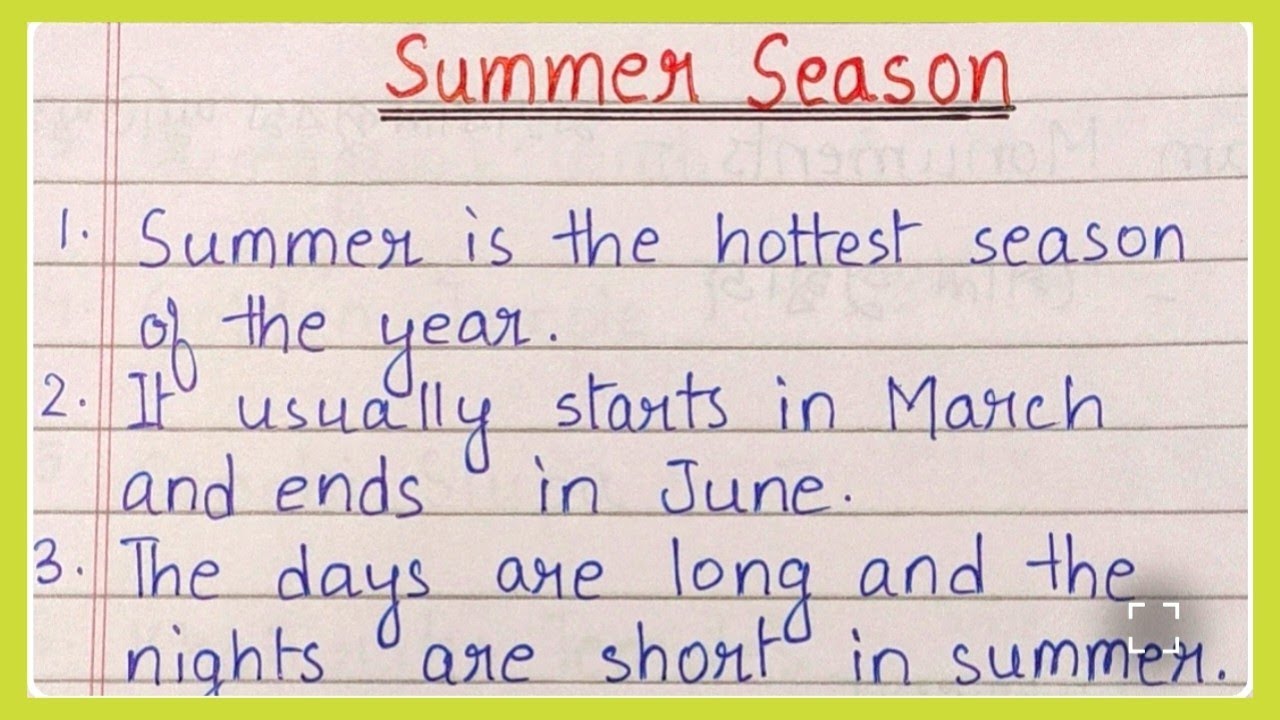 Summer Season
1. Summer is the hottest season
of the year.
2. It usually starts in March
and ends in June.
3. The days are long and the
nights are short in summer.